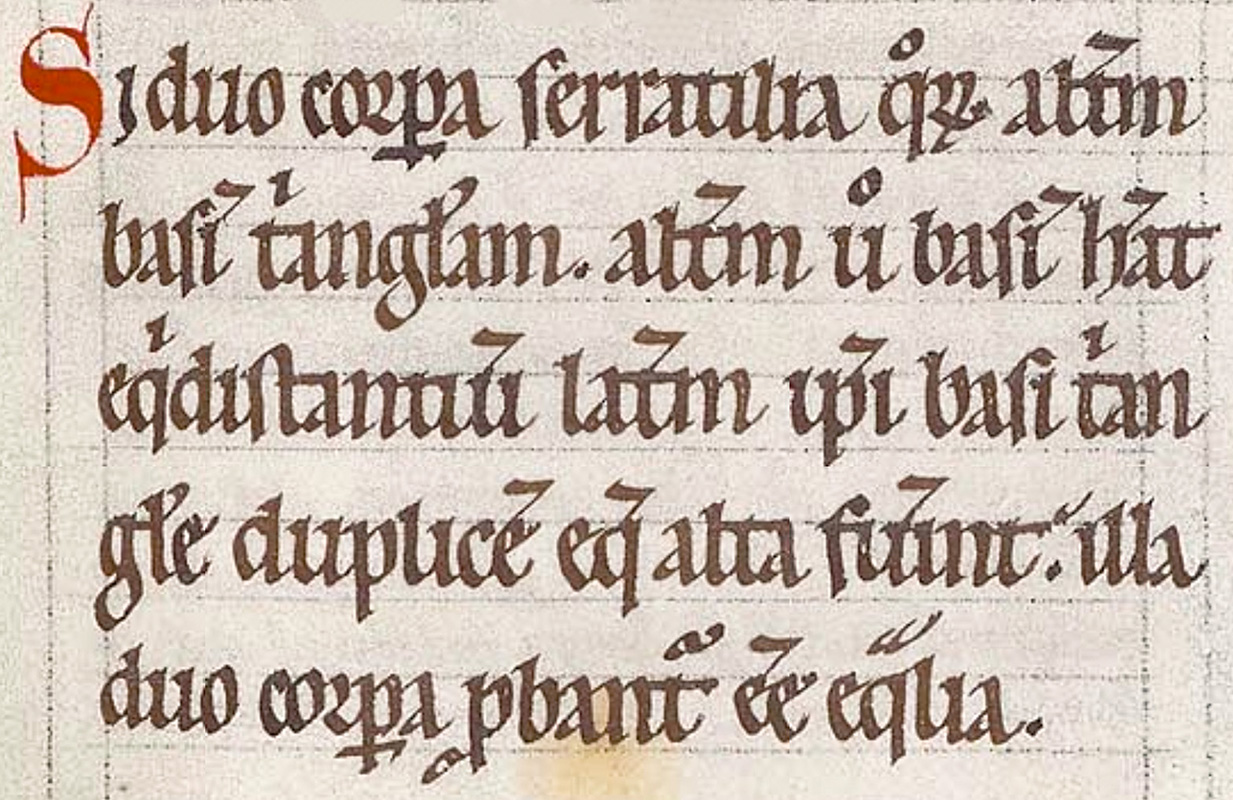 Si duo corꝑa serratilia qͦꝝ altm̄
basī tͥnglam. altm̄ uͦ basī hāt
eqͥdistantiū latm̄ ip̄i basi tͥan
gƚe duplicē eq̄ alta fūint: illa
duo corꝑa ꝓbant᷑ eē eqᷓlia.